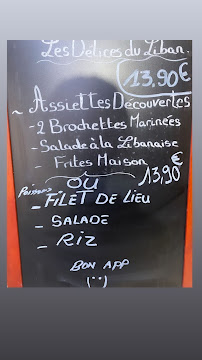 Les Délices du Liban.
13,90€
~ Assiettes Découvertes
- 2 Brochettes Marinées
- Salade à la Libanaise
- Frites Maison
OU 13,90€
Poissons
- FiLET DE LiEU
- SALADE
- RiZ
BON APP
(¨)